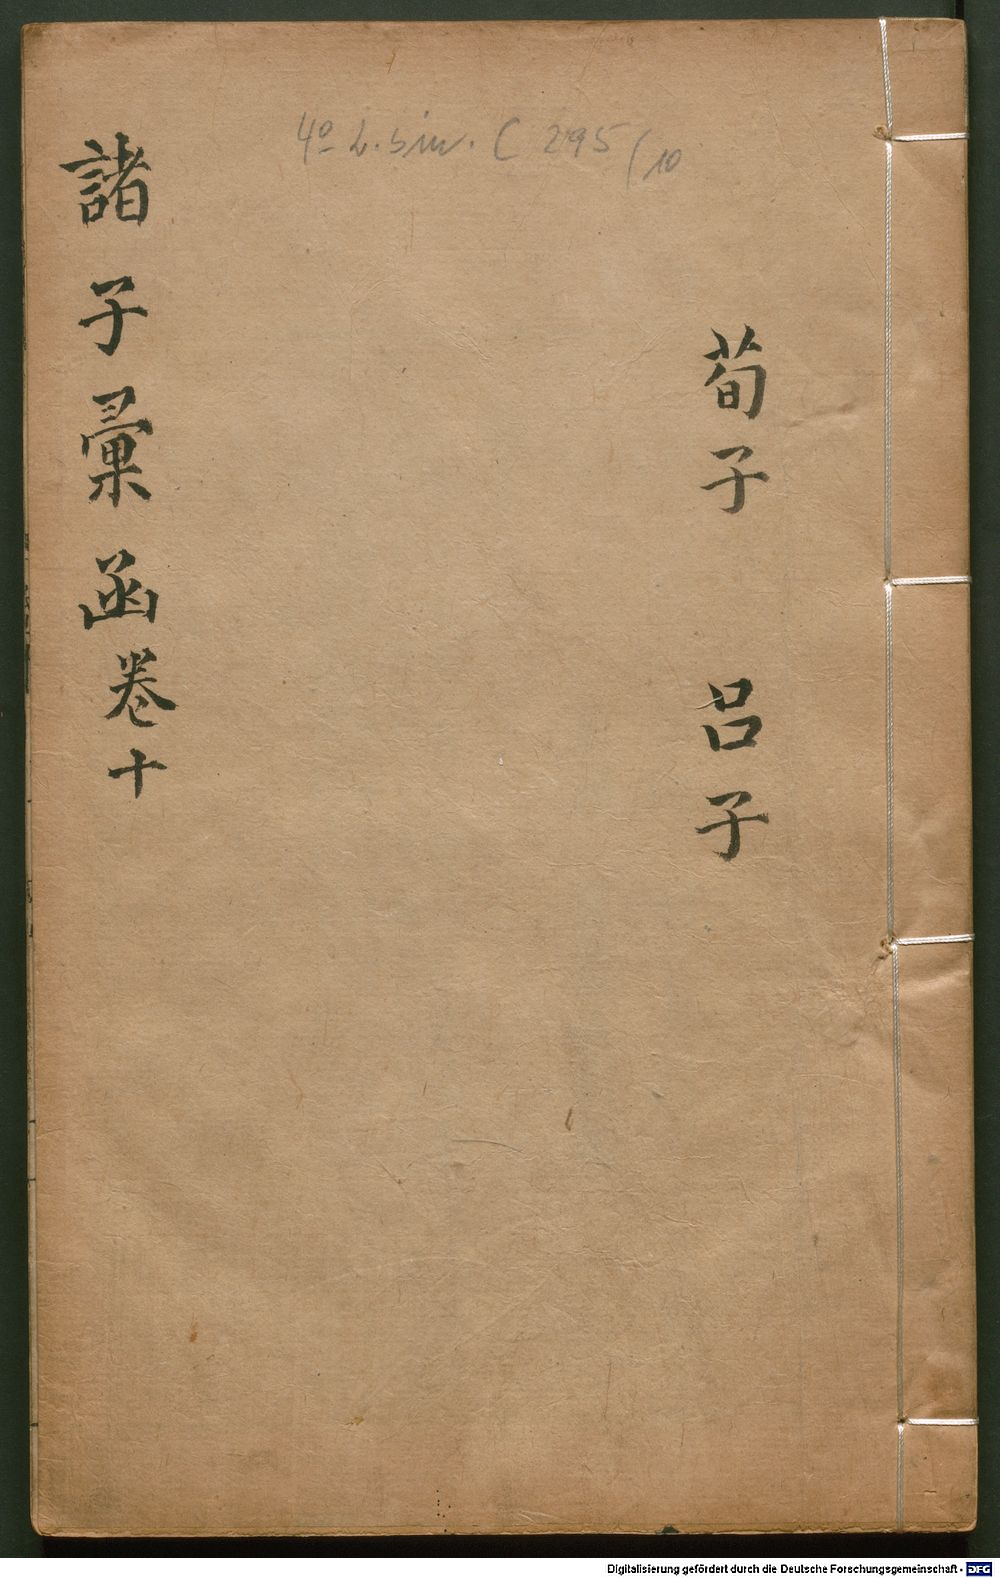 4º L. sin. C 295 (10
荀子 呂子
諸子彙函卷十
Digitalisierung gefördert durch die Deutsche Forschungsgemeinschaft - DFG